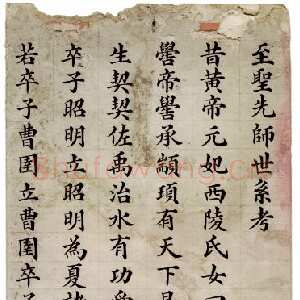 至聖先師世系考
昔黃帝元妃西陵氏女
嚳帝嚳承顓頊有天下
生契契佐禹治水有功
卒子昭明立昭明為夏
若卒子曹圉立曹圉卒子